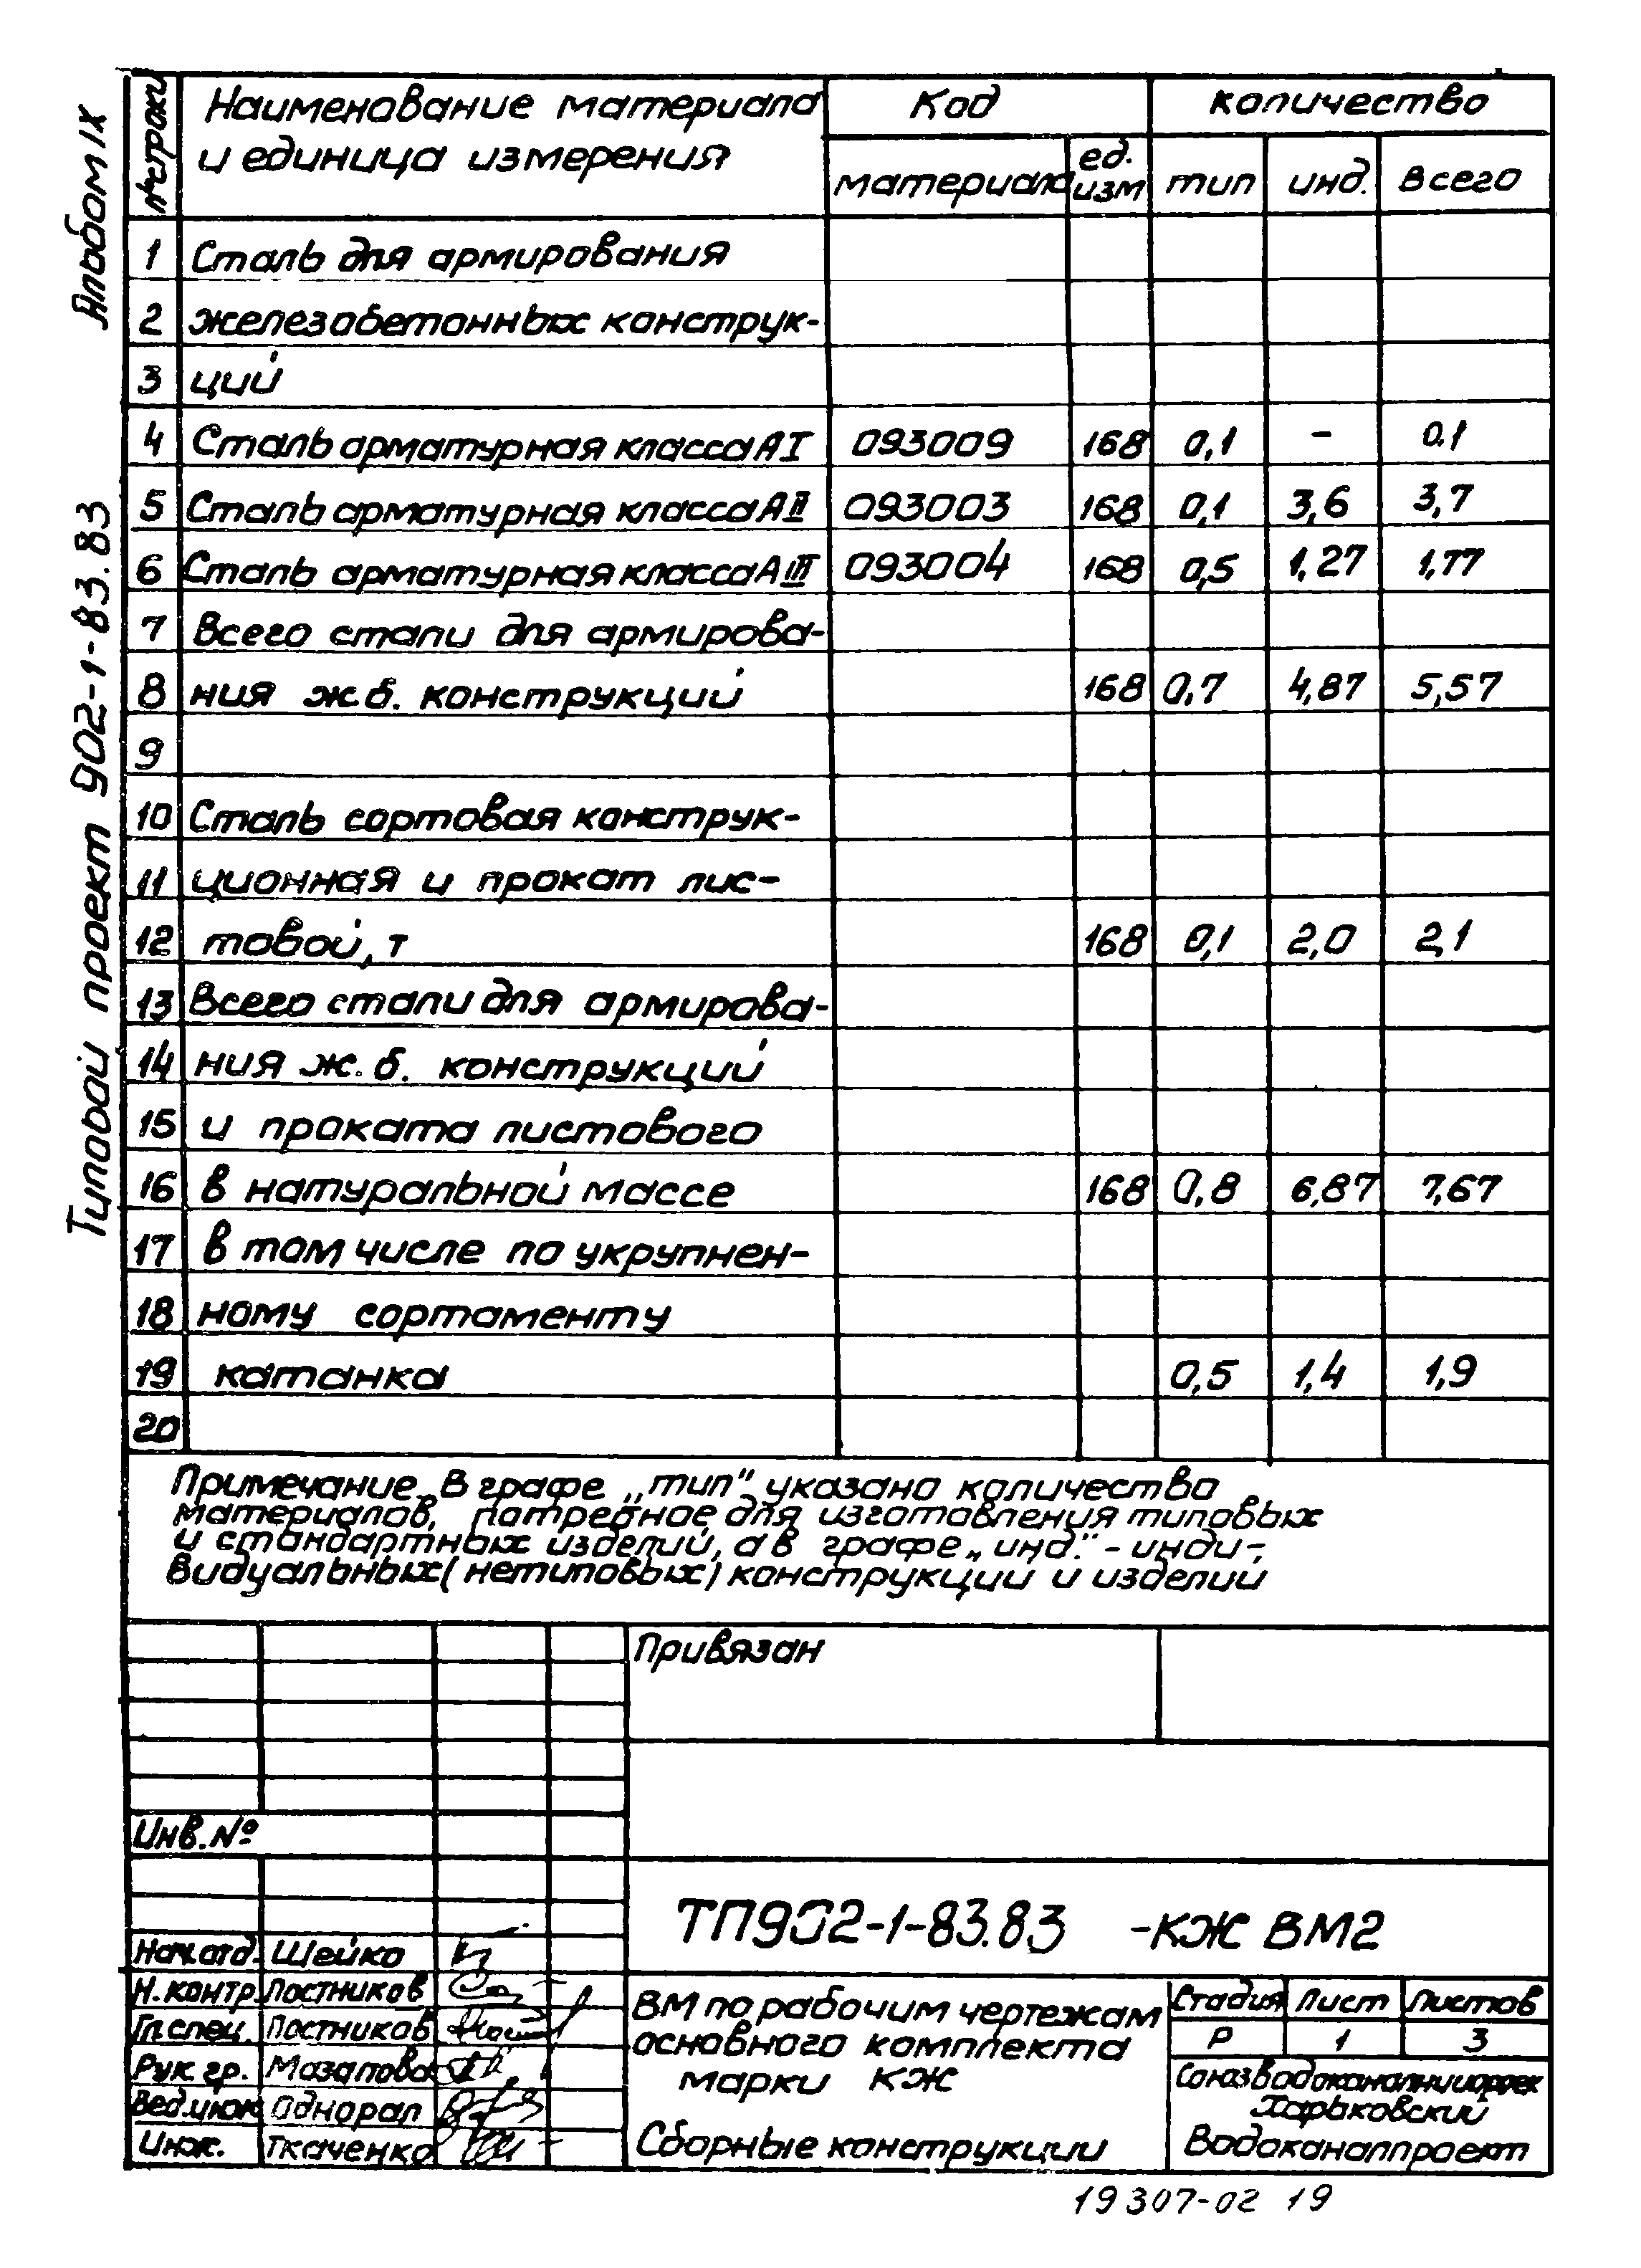 Альбом IX
Типовой проект 902-1-83.83
№ строки Наименование материала и единица измерения Код количество
материала ед. изм тип инд. всего
1 Сталь для армирования
2 железабетонных конструк-
3 ций
4 Сталь арматурная класса АI 093009 168 0,1 - 0,1
5 Сталь арматурная класса АII 093003 168 0,1 3,6 3,7
6 Сталь арматурная класса АIII 093004 168 0,5 1,27 1,77
7 Всего стали для армирова-
8 ния ж.б. конструкций 168 0,7 4,87 5,57
9
10 Сталь сортовая конструк-
11 ционная и прокат лис-
12 товой, т 168 0,1 2,0 2,1
13 Всего стали для армирова-
14 ния ж.б. конструкций
15 и проката листового
16 в натуральной массе 168 0,8 6,87 7,67
17 в том числе по укрупнен-
18 ному сортаменту
19 катанка 0,5 1,4 1,9
20
Примечание. В графе „тип" указано количество
материалов, потребное для изготовления типовых
и стандартных изделий, а в графе „инд." - инди-
видуальных (нетиповых) конструкций и изделий
Привязан
Инв. №
ТП902-1-83.83 -КЖ ВМ2
Нач.отд. Шейко
Н.контр. Постников
Гл.спец. Постников
Рук. гр. Мазалова
Вед.инж Однорал
Инж. Ткаченко
ВМ по рабочим чертежам
основного комплекта
марки КЖ
Сборные конструкции
Стадия Лист Листов
Р 1 3
Союзводоканалниипроект
Харьковский
Водоканалпроект
19307-02 19